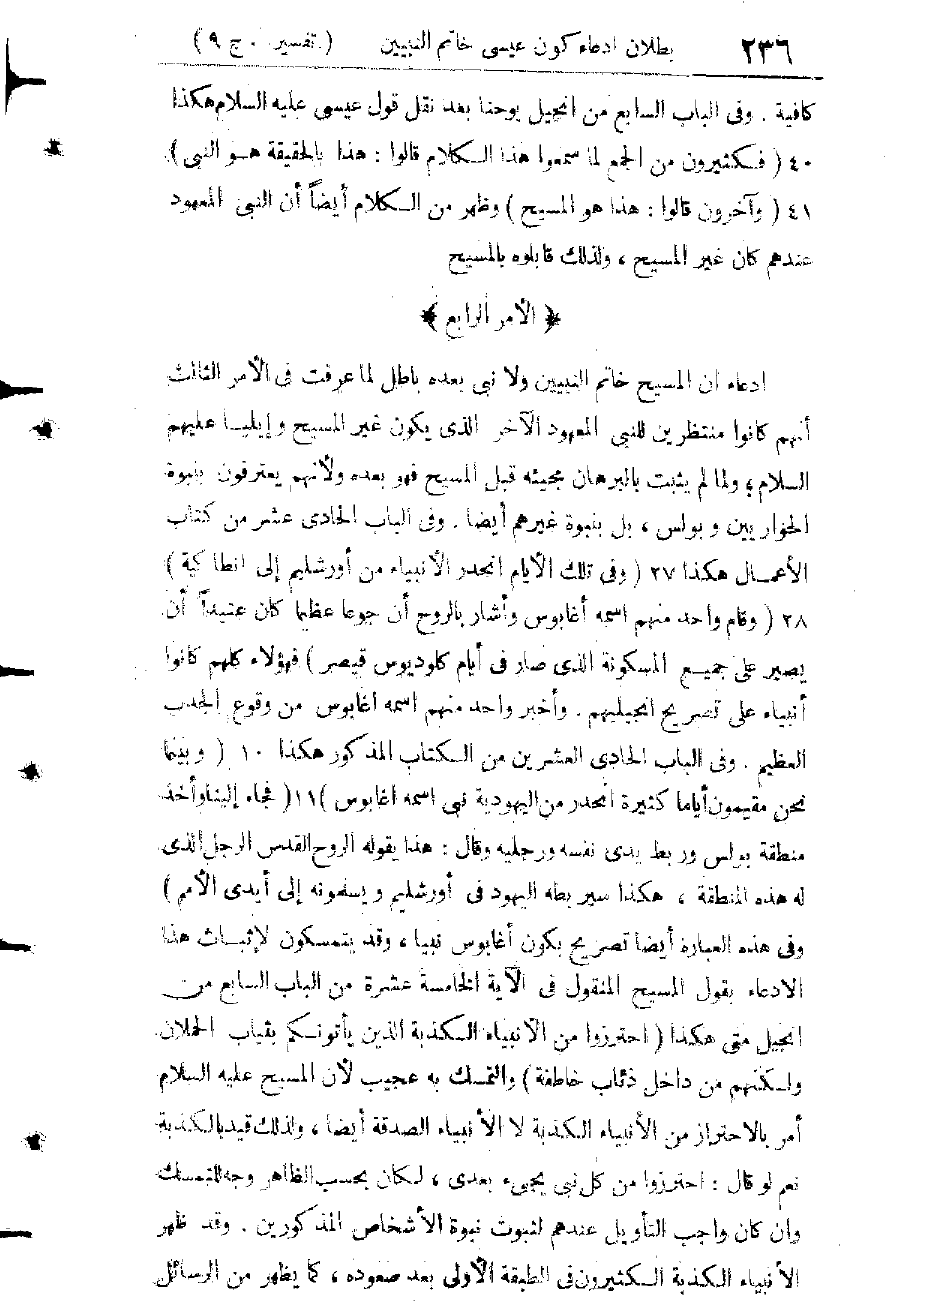 ٢٣٦ بطلان ادعاء كون عيسى خاتم النبيين ( تفسير . ج ٩ )
كافية . وفى الباب السابع من انجيل يوحنا بعد نقل قول عيسى عليه السلام هكذا
٤٠ ( فكثيرون من الجمع لما سمعوا هذا الكلام قالوا : هذا بالحقيقة هو النبي )
٤١ ( وآخرون قالوا : هذا هو المسيح ) وظهر من الكلام أيضاً أن النبي المعهود
عندهم كان غير المسيح ، ولذلك قابلوه بالمسيح
﴿ الأمر الرابع ﴾
ادعاء ان المسيح خاتم النبيين ولا نبي بعده باطل لما عرفت فى الأمر الثالث
أنهم كانوا منتظرين للنبي المعهود الآخر الذى يكون غير المسيح وإيليا عليهم
السلام ، ولما لم يثبت بالبرهان مجيئه قبل المسيح فهو بعده ولأنهم يعترفون بنبوة
الحواريين وبولس ، بل بنبوة غيرهم أيضا . وفى الباب الحادى عشر من كتاب
الأعمال هكذا ٢٧ ( وفى تلك الأيام انحدر الأنبياء من أورشليم إلى انطاكية )
٢٨ ( وقام واحد منهم اسمه أغابوس وأشار بالروح أن جوعا عظيما كان عتيداً أن
يصير على جميع المسكونة الذى صار فى أيام كلوديوس قيصر ) فهؤلاء كلهم كانوا
أنبياء على تصريح انجيليهم . وأخبر واحد منهم اسمه اغابوس من وقوع الجدب
العظيم . وفى الباب الحادى العشرين من الكتاب المذكور هكذا ١٠ ( وبينما
نحن مقيمون أياما كثيرة انحدر من اليهودية نبي اسمه اغابوس ) ١١ ( فجاء إلينا وأخذ
منطقة بولس وربط يدى نفسه ورجليه وقال : هذا يقوله الروح القدس الرجل الذى
له هذه المنطقة ، هكذا سيربطه اليهود فى أورشليم ويسلمونه إلى أيدى الأمم )
وفى هذه العبارة أيضا تصريح بكون أغابوس نبيا ، وقد يتمسكون لإثبات هذا
الادعاء بقول المسيح المنقول فى الآية الخامسة عشرة من الباب السابع من
انجيل متى هكذا ( احترزوا من الأنبياء الكذبة الذين يأتونكم بثياب الحملان
ولكنهم من داخل ذئاب خاطفة ) والتمسك به عجيب لأن المسيح عليه السلام
أمر بالاحتراز من الأنبياء الكذبة لا الأنبياء الصدقة أيضا ، ولذلك قيد بالكذبة
نعم لو قال : احترزوا من كل نبي يجيىء بعدى ، لكان بحسب الظاهر وجه للتمسك
وان كان واجب التأويل عندهم لثبوت نبوة الأشخاص المذكورين . وقد ظهر
الأنبياء الكذبة الكثيرون فى الطبقة الأولى بعد صعوده ، كما يظهر من الرسائل